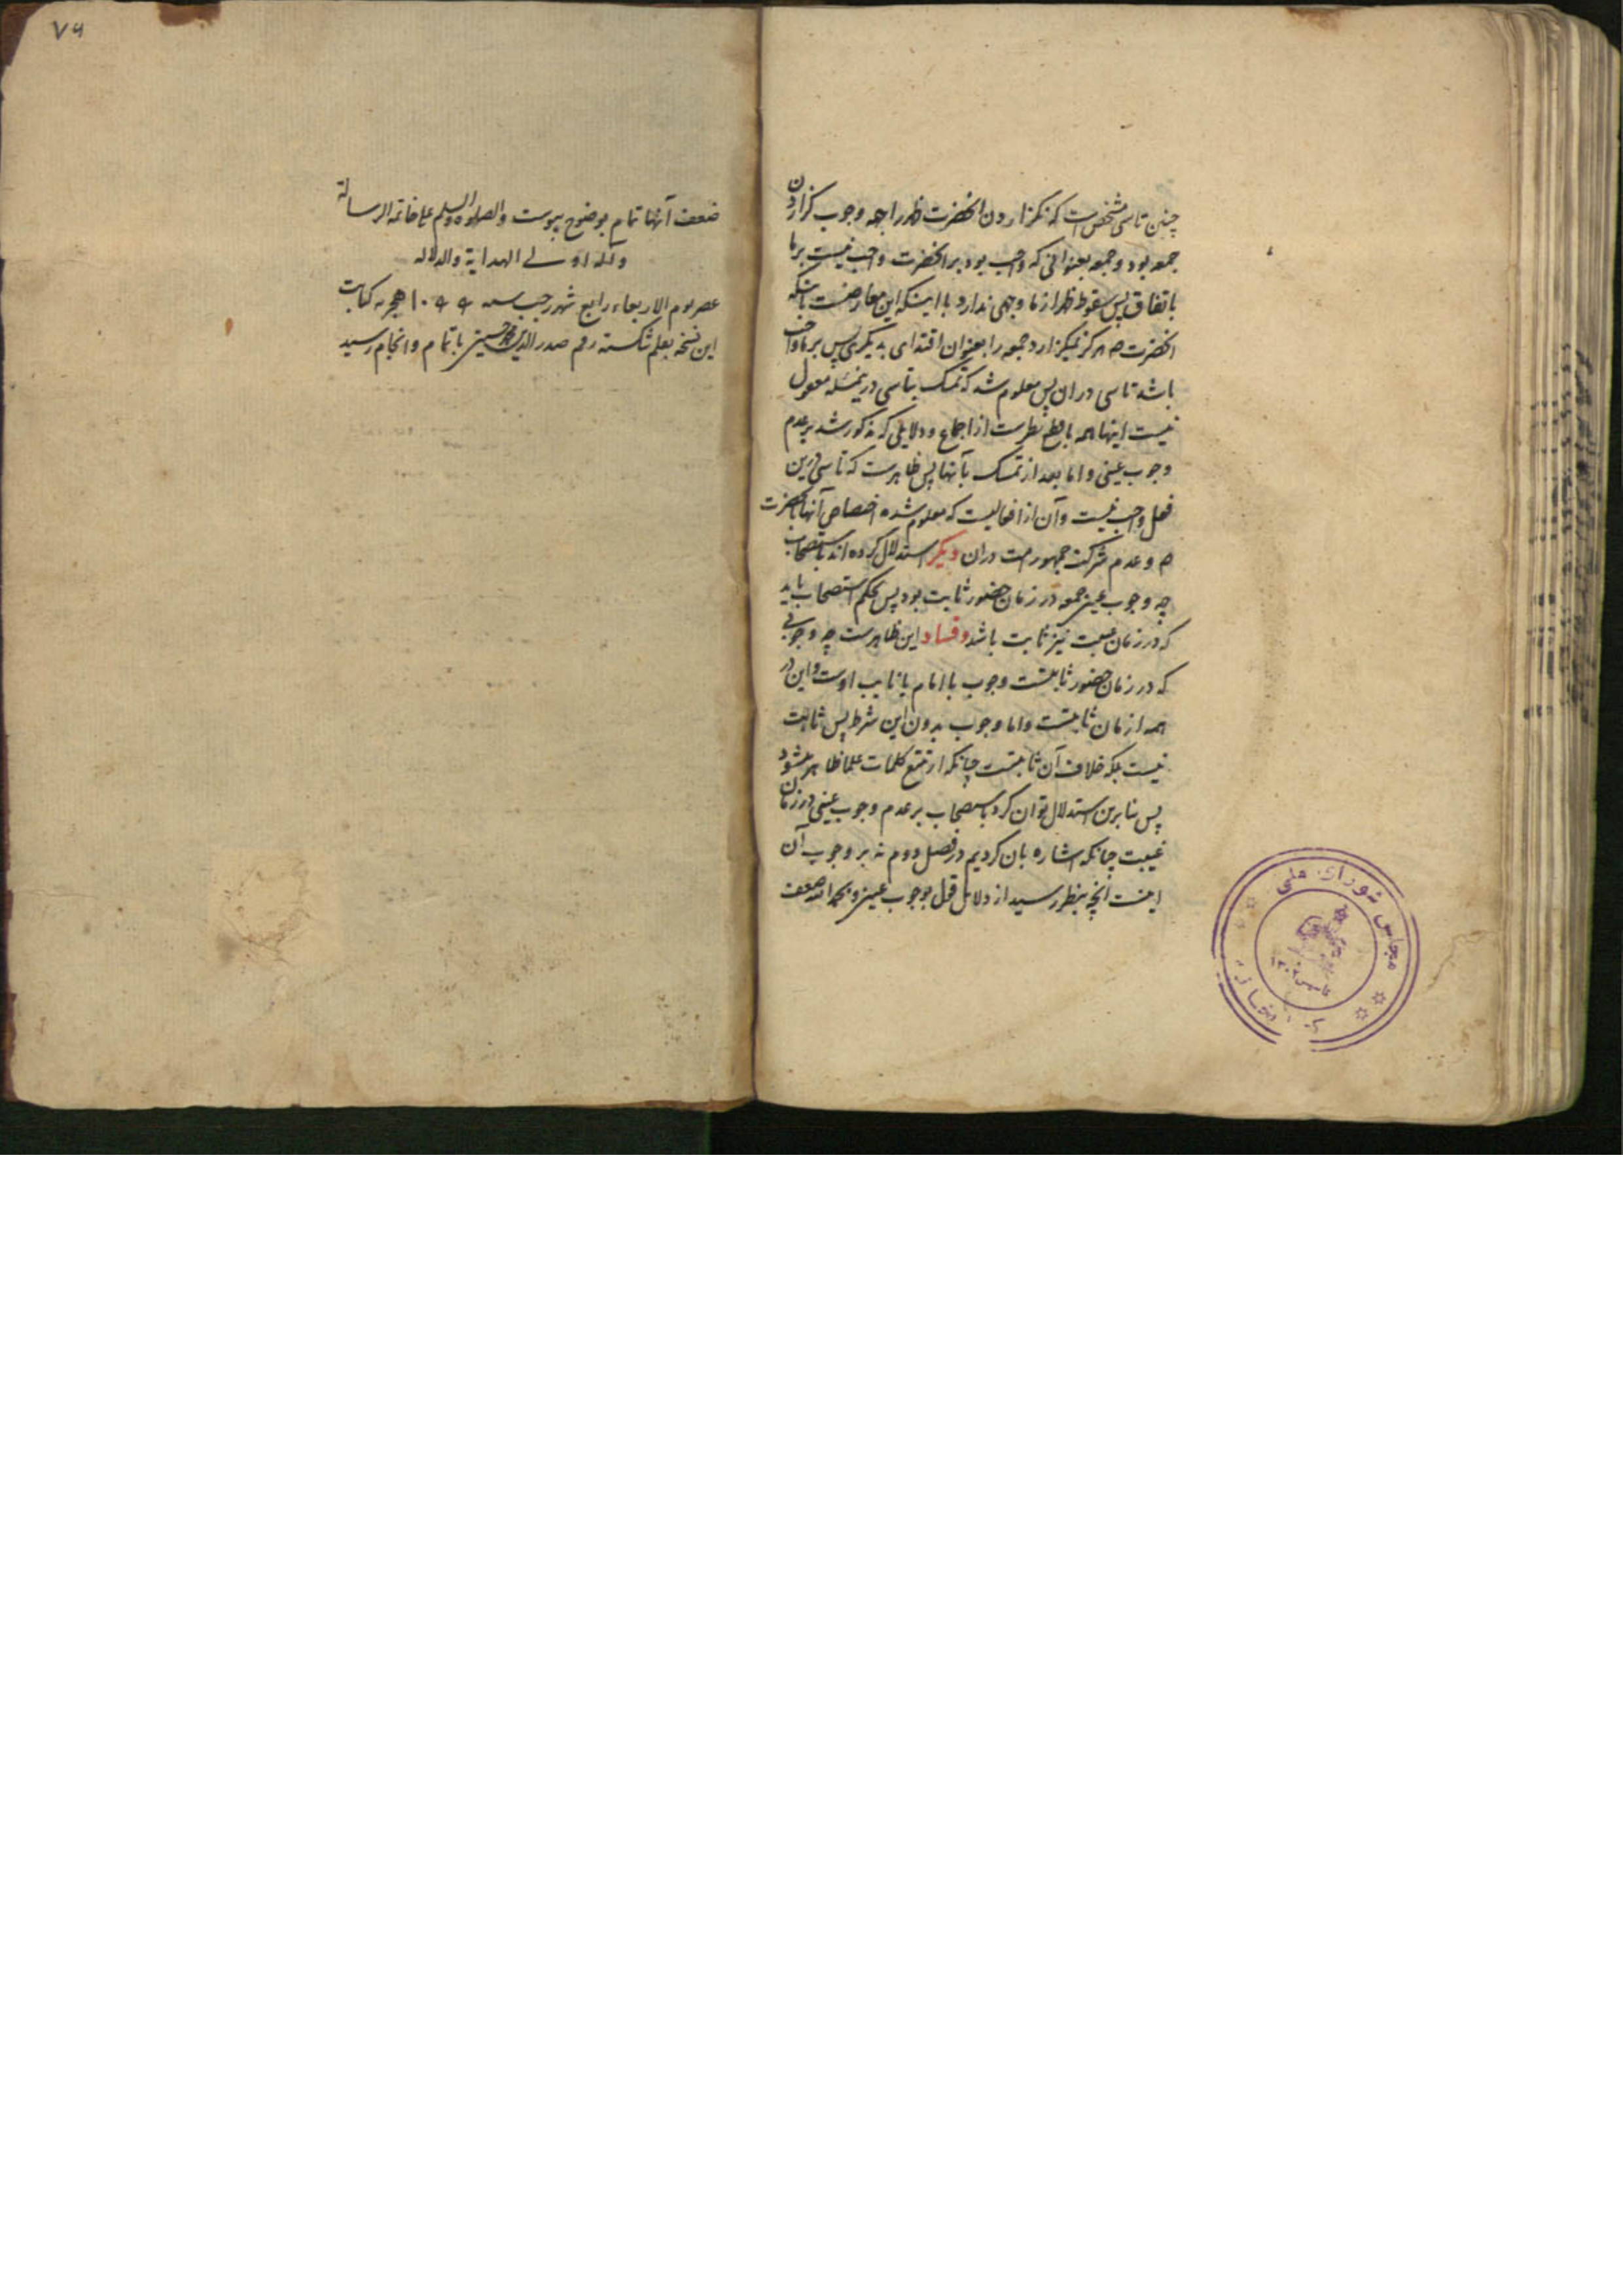 چنین تاسی مشخص است که نگزاردن انحضرت ظهر را بجهه وجوب گزاردن
جمعه بود و جمعه بعنوانی که واجب بود بر انحضرت واجب نیست بر ما
باتفاق پس سقوط ظهر از ما وجهی ندارد با اینکه این معارضست بانکه
انحضرت ص هرگز نمیگزارد جمعه را بعنوان اقتدای بدیگری پس بر ما واجب
باشد تاسی در ان پس معلوم شد که تمسک بتاسی درینمسئله معقول
نیست اینها همه با قطع نظرست از اجماع و دلایلی که مذکور شد بر عدم
وجوب عینی و اما بعد از تمسک بآنها پس ظاهرست که تاسی درین
فعل واجب نیست و آن از افعالیست که معلوم شده اختصاص آنها بانحضرت
ص و عدم شرکت جمهور امت دران دیگر استدلال کرده اند باستصحاب
چه وجوب عینی جمعه در زمان حضور ثابت بود پس بحکم استصحاب باید
که در زمان غیبت نیز ثابت باشد و فساد این ظاهرست چه وجوبی
که در زمان حضور ثابتست وجوب با امام یا نایب اوست و این در
همه ازمان ثابتست و اما وجوب بدون این شرط پس ثابت
نیست بلکه خلاف آن ثابتست چنانکه از تتبع کلمات علما ظاهر میشود
پس بنابرین استدلال توان کرد باستصحاب بر عدم وجوب عینی در زمان
غیبت چنانکه اشاره بان کردیم در فصل دوم نه بر وجوب آن
اینست انچه بنظر رسید از دلایل قول بوجوب عینی و بحمد الله ضعف
مجلس شورای ملی
کتابخانه
۷۹
ضعف آنها تمام بوضوح پیوست والصلوه والسلم علی خاتم الرسالة
وآله اولی الهدایة والدلاله
عصر یوم الاربعاء رابع شهر رجب سنه ۱۰۹۹ هجریه کتابت
این نسخه بقلم شکسته رقم صدر الدین محمد حسینی باتمام و انجام رسید